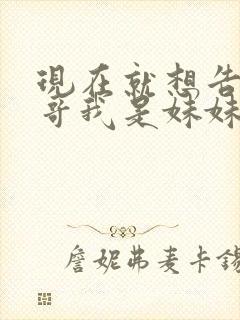 現在就想告
哥我是妹妹
詹妮弗麦卡錫